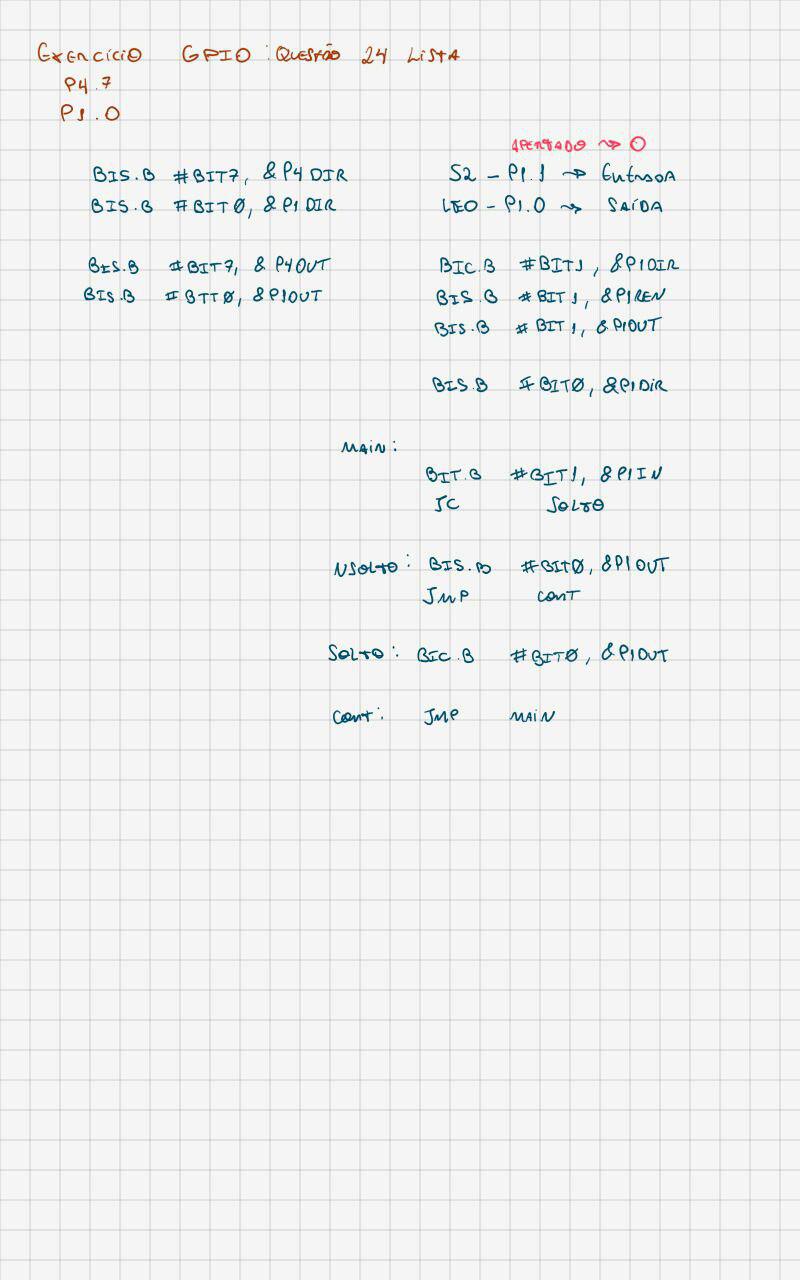 EXERCÍCIO GPIO: QUESTÃO 24 LISTA
P4.7
P1.0
BIS.B #BIT7, &P4DIR
BIS.B #BIT0, &P1DIR
BIS.B #BIT7, &P4OUT
BIS.B #BIT0, &P1OUT
APERTADO ⇝ 0
S2 - P1.1 ⇝ ENTRADA
LED - P1.0 ⇝ SAÍDA
BIC.B #BIT1, &P1DIR
BIS.B #BIT1, &P1REN
BIS.B #BIT1, &P1OUT
BIS.B #BIT0, &P1DIR
MAIN:
BIT.B #BIT1, &P1IN
JC SOLTO
NSOLTO: BIS.B #BIT0, &P1OUT
JMP CONT
SOLTO: BIC.B #BIT0, &P1OUT
CONT: JMP MAIN